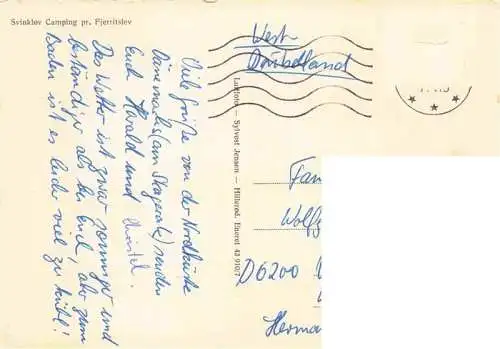 Svinkløv Camping pr. Fjerritslev
Viele Grüße von der Nordküste
Dänemarks (am Skagerak) senden
Euch Harald und Christel.
Das Wetter ist zwar sonniger und
beständiger als bei Euch, aber zum
Baden ist es leider viel zu kühl!
West
Deutschland
Fam
Wolfg
D6200
Herma
— Sylvest Jensen — Hillerød. Eneret 42 910/7